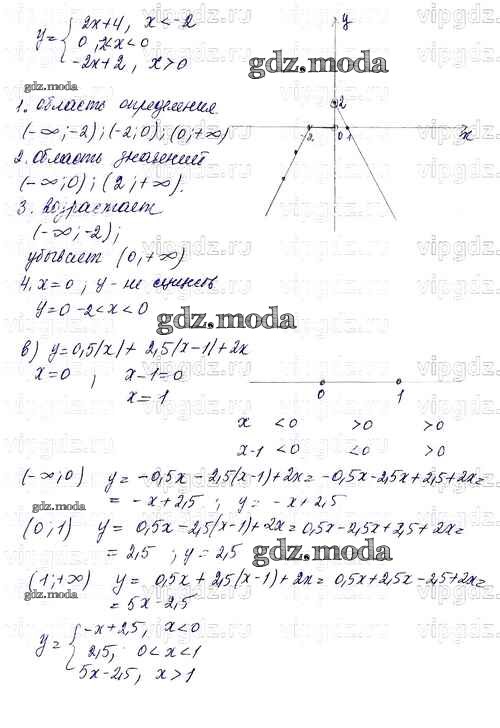 y= { 2x+4, x<-2
0, -2<x<0
-2x+2, x>0
gdz.moda
gdz.moda
y
2
-2 0 1 x
1. область определения
(-∞;-2);(-2;0);(0;+∞)
2. область значений
(-∞;0);(2;+∞).
3. возрастает
(-∞;-2);
убывает (0,+∞)
4. x=0; y - не существ
y=0 -2<x<0
gdz.moda
в) y=0,5|x|+2,5|x-1|+2x
x=0; x-1=0
x=1
0 1
x <0 >0 >0
x-1 <0 <0 >0
(-∞;0) y=-0,5x-2,5(x-1)+2x=-0,5x-2,5x+2,5+2x=
gdz.moda
=-x+2,5; y=-x+2,5
(0;1) y=0,5x-2,5(x-1)+2x=0,5x-2,5x+2,5+2x=
=2,5; y=2,5
gdz.moda
(1;+∞) y=0,5x+2,5(x-1)+2x=0,5x+2,5x-2,5+2x=
gdz.moda
=5x-2,5
y= { -x+2,5, x<0
2,5, 0<x<1
5x-2,5, x>1